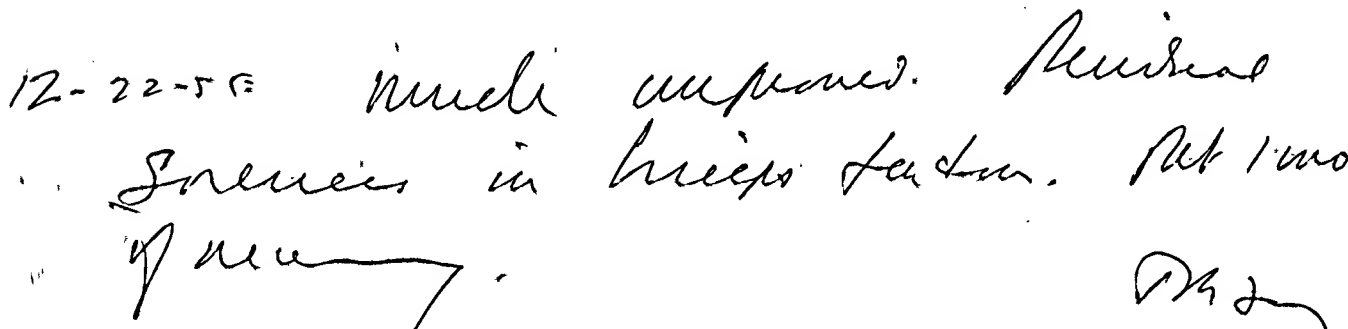 12-22-55 Much improved. Residual
Soreness in biceps tendon. Ret 1 mo
if necessary.